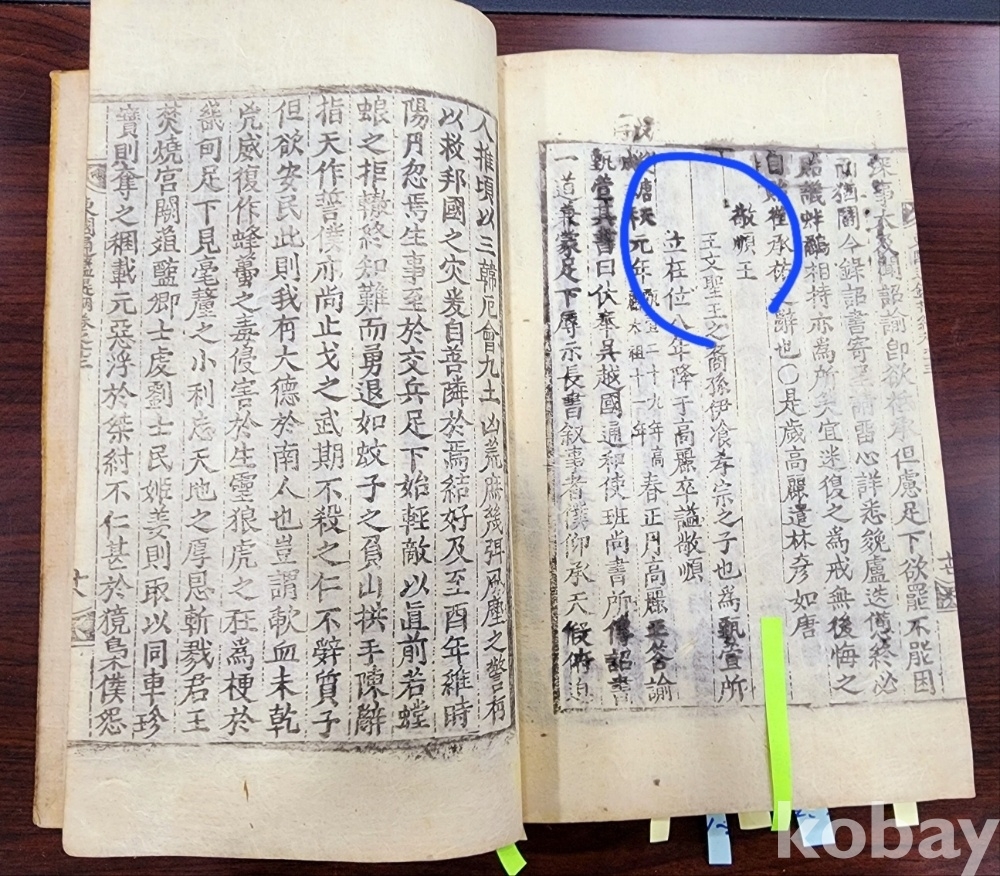 深事大聞詔諭卽欲祗承但慮足下欲罷不能困
而猶鬪今錄詔書寄呈請留心詳悉㕙盧迭憊終必
貽譏蚌鷸相持亦爲所笑宜迷復之爲戒無後悔之
自貽權承祐之辭也〇是歲高麗遣林彦如唐
敬順王
王文聖王之裔孫伊飡孝宗之子也爲甄萱所
立在位八年降于高麗卒諡敬順
後唐元年春正月高麗王答諭
甄萱書曰伏奉吳越國通和使班尙書所傳詔書
一道兼蒙足下辱示長書叙事書僕仰承天假俯迫
人推頃以三韓厄會九土凶荒庶幾弭風塵之警有
以救邦國之災爰自善隣於焉結好及至酉年維時
陽月忽焉生事至於交兵足下始輕敵以直前若螳
蜋之拒轍終知難而勇退如蚊子之負山拱手陳辭
指天作誓僕亦尙止戈之武期不殺之仁不辭質子
但欲安民此則我有大德於南人也豈謂歃血未乾
兇威復作蜂蠆之毒侵害於生靈狼虎之狂爲梗於
畿甸足下見毫釐之小利忘天地之厚恩斬戮君王
焚燒宮闕葅醢卿士虔劉士民姬姜則取以同車珍
寶則奪之稛載元惡浮於桀紂不仁甚於獍梟僕怨
kobay